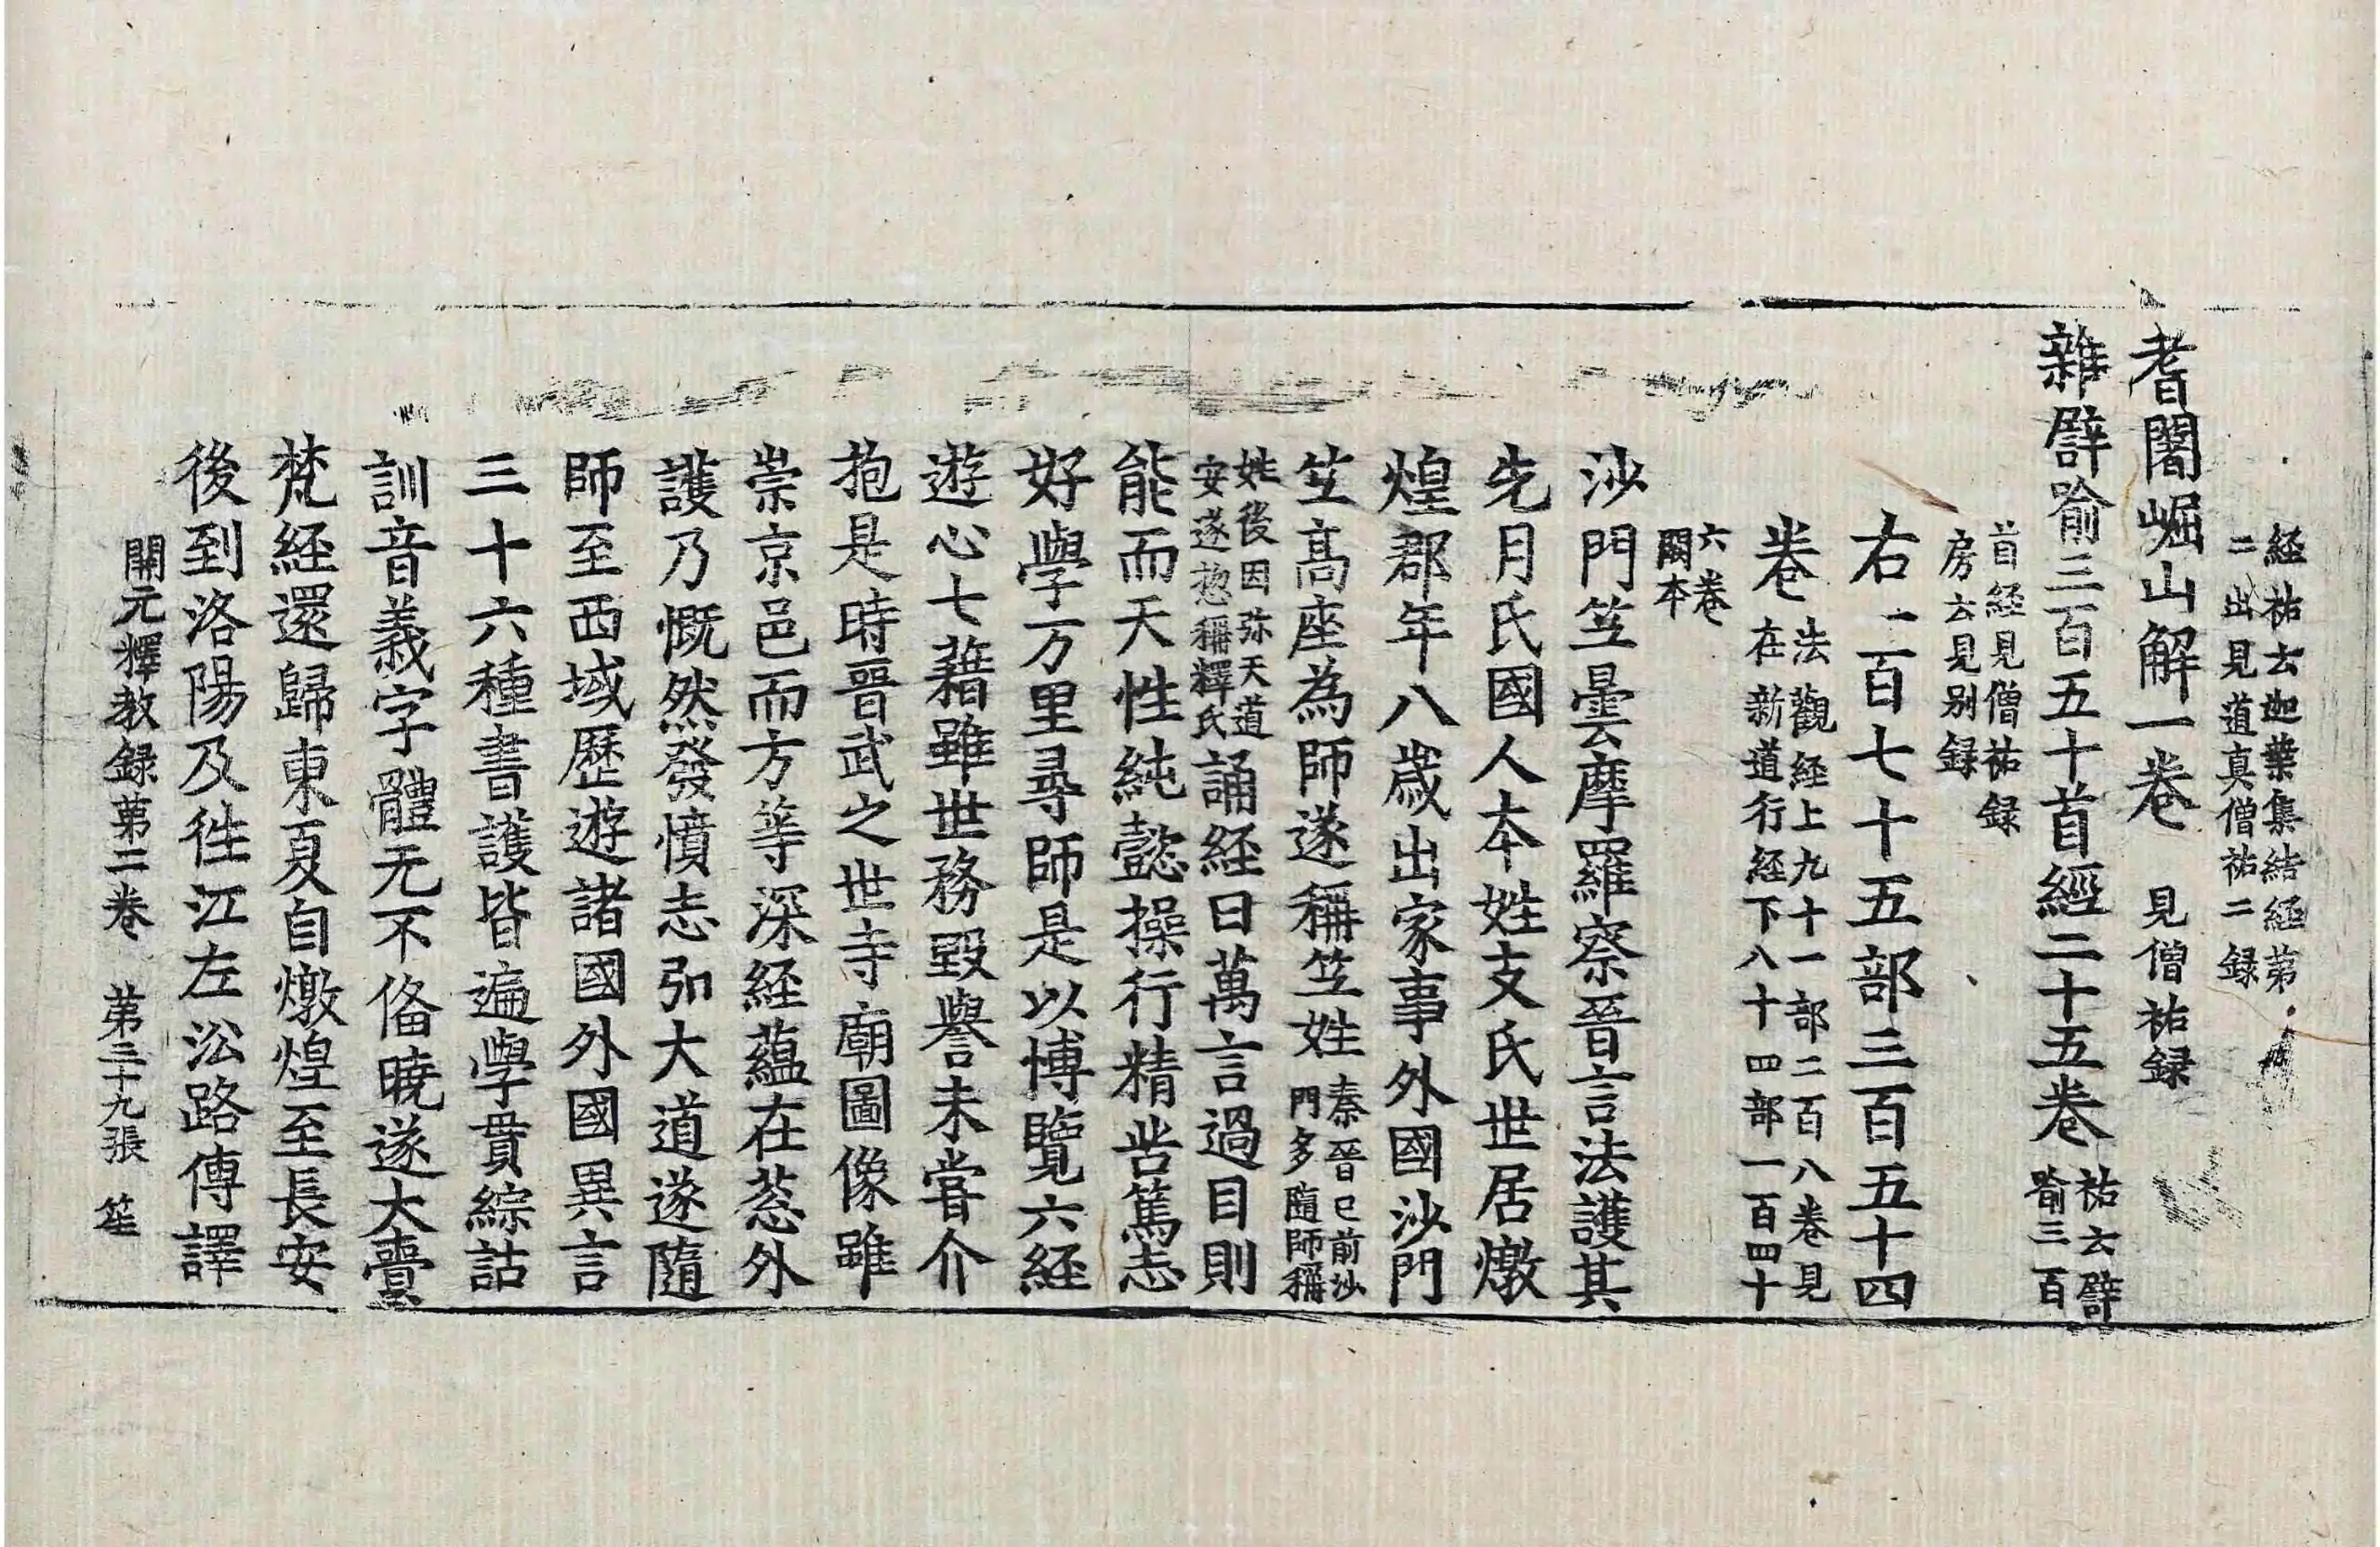 経祐云迦葉集結経第
二出見道真僧祐二録
耆闍崛山解一卷　見僧祐録
雜譬喻三百五十首經二十五卷　祐云譬
喻三百
首経見僧祐録
房云見别録
右二百七十五部三百五十四
卷　法觀経上九十一部二百八卷見
在新道行経下八十四部一百四十
六卷
闕本
沙門竺曇摩羅察晉言法護其
先月氏國人本姓支氏世居燉
煌郡年八歳出家事外國沙門
竺髙座為師遂稱竺姓　秦晉已前沙
門多隨師稱
姓後因弥天道
安遂惣稱釋氏　誦経日萬言過目則
能而天性純懿操行精苦篤志
好學万里尋師是以博覽六経
遊心七藉雖世務毀譽未甞介
抱是時晉武之世寺廟圖像雖
崇京邑而方等深経蘊在葱外
護乃慨然發憤志弘大道遂隨
師至西域歷遊諸國外國異言
三十六種書護皆遍學貫綜詁
訓音義字體无不俻曉遂大賷
梵経還歸東夏自燉煌至長安
後到洛陽及徃江左㳂路傳譯
開元釋教録第二卷　第三十九張　笙